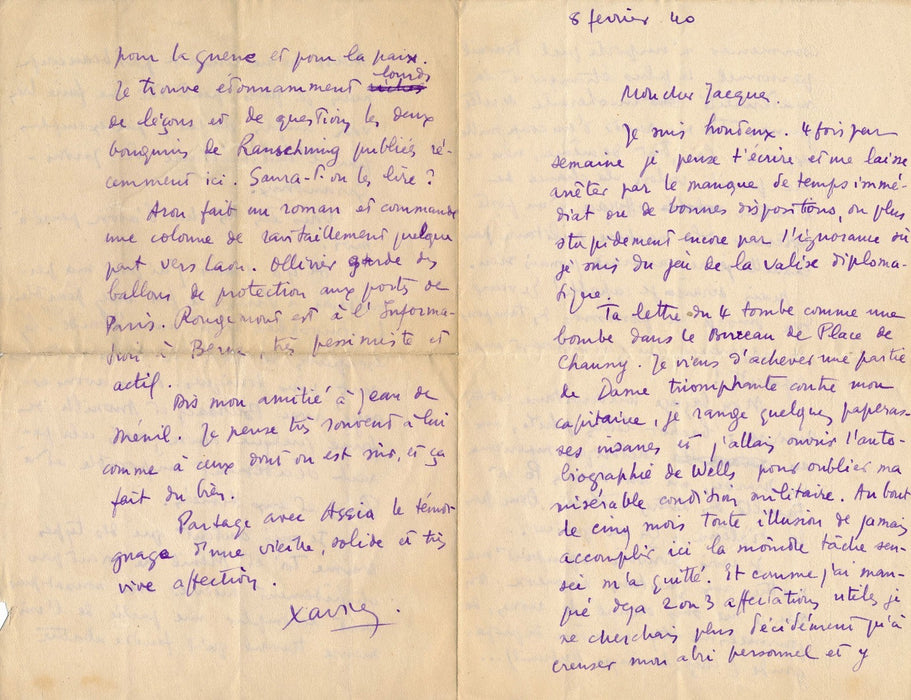 8 fevrier 40
Mon cher Jacques.
Je suis honteux. 4 fois par
semaine je pense t'écrire, et me laisse
arrêter par le manque de temps immé-
diat ou de bonnes dispositions, ou plus
stupidement encore par l'ignorance où
je suis du jeu de la valise diploma-
tique.
Ta lettre du 4 tombe comme une
bombe dans le Bureau de Place de
Chauny. Je viens d'achever une partie
de Dame triomphante contre mon
capitaine, je range quelques paperas-
ses insanes et j'allais ouvrir l'auto-
biographie de Wells pour oublier ma
misérable condition militaire. Au bout
de cinq mois toute illusion de jamais
accomplir ici la moindre tâche sen-
sée m'a quitté. Et comme j'ai man-
qué déja 2 ou 3 affectations utiles, je
ne cherchais plus décidément qu'à
creuser mon abri personnel et y
pour la guerre et pour la paix.
Je trouve etonnamment lourds
de leçons et de questions les deux
bouquins de Rauschning publiés ré-
cemment ici. Saura-t-on les lire ?
Aron fait un roman et commande
une colonne de ravitaillement quelque
part vers Laon. Ollivier garde des
ballons de protection aux ports de
Paris. Rougemont est à l'Informa-
tion à Berne, très pessimiste et
actif.
Dis mon amitié à Jean de
Ménil. Je pense très souvent à lui
comme à ceux dont on est sûr, et ça
fait du bien.
Partage avec Assia le témoi-
gnage d'une vieille, solide et très
vive affection.
Xavier.